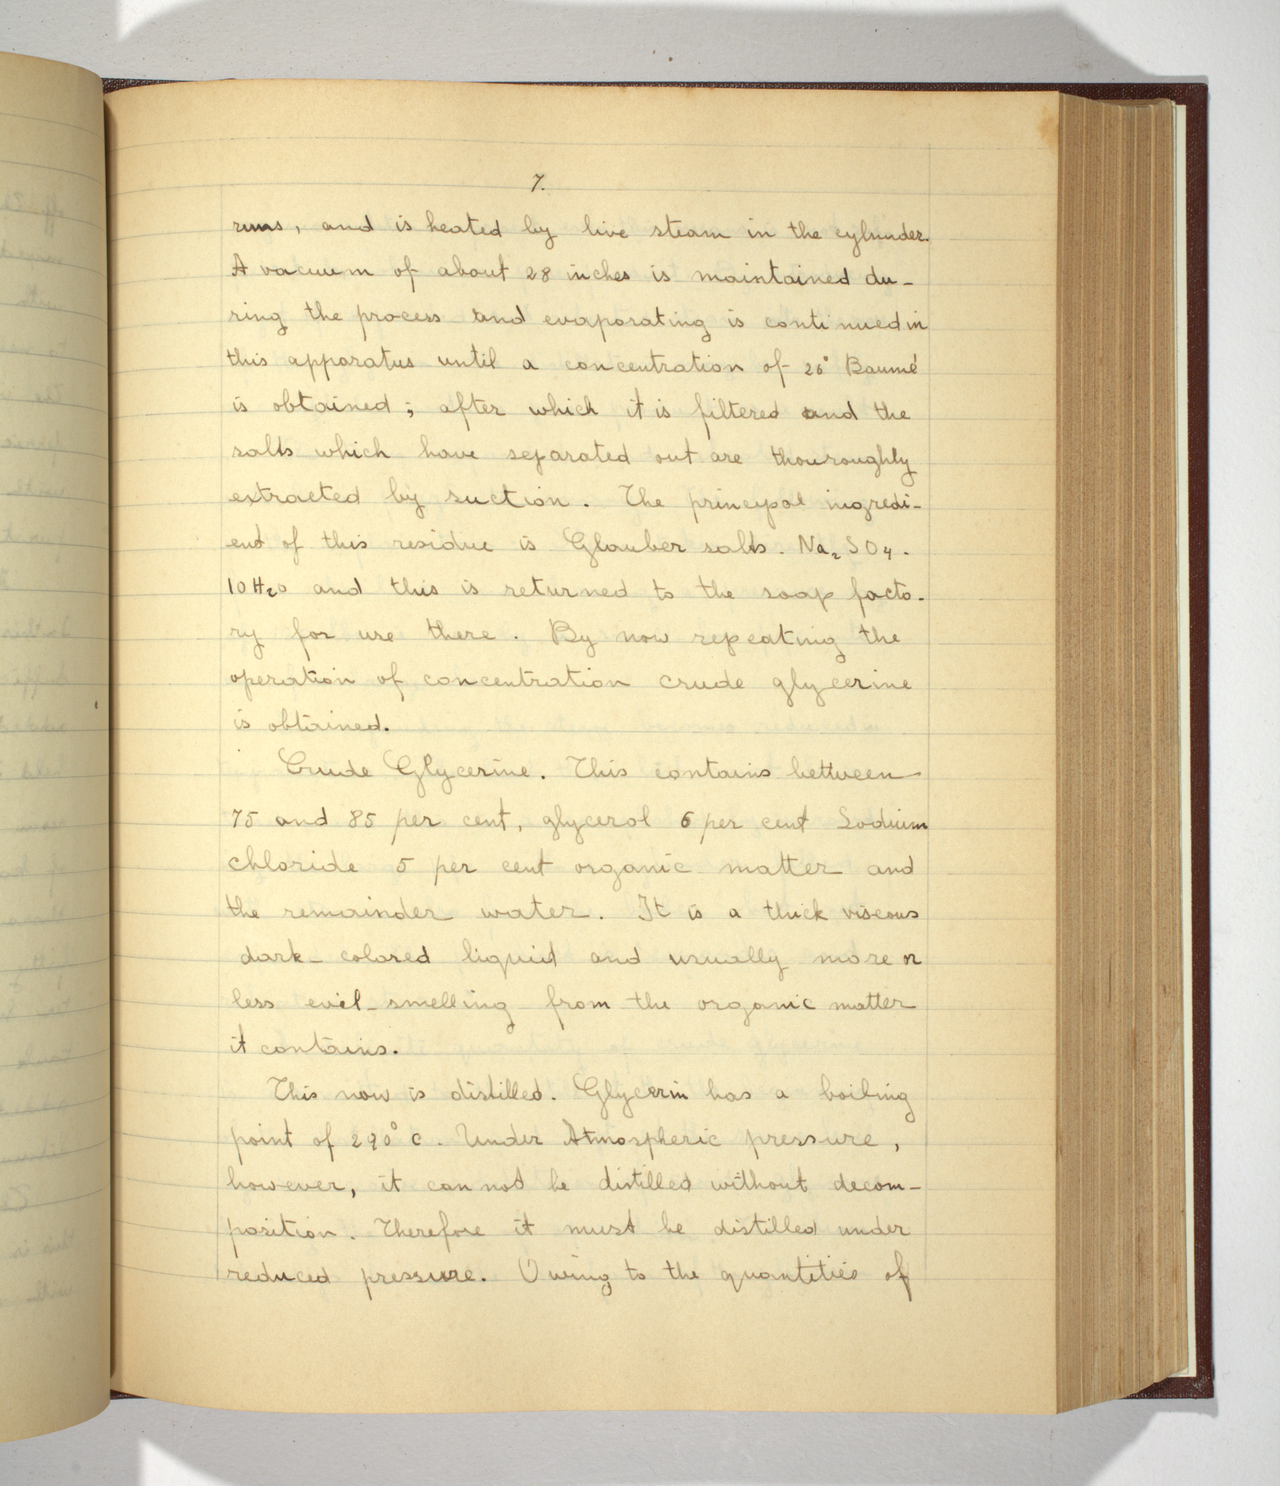 7.
runs, and is heated by live steam in the cylunder.
A vacuum of about 28 inches is maintained du-
ring the process and evaporating is continued in
this apparatus until a concentration of 26° Baumé
is obtained; after which it is filtered and the
salts which have separated out are thouroughly
extracted by suction. The principal ingredi-
ent of this residue is Glauber salts. Na2SO4.
10H2O and this is returned to the soap facto-
ry for use there. By now repeating the
operation of concentration crude glycerine
is obtained.
Crude Glycerine. This contains bettween
75 and 85 per cent, glycerol 6 per cent Sodium
chloride 5 per cent organic matter and
the remainder water. It is a thick viscous
dark-colored liquid and usually more or
less evil-smelling from the organic matter
it contains.
This now is distilled. Glycerin has a boiling
point of 290° C. Under Atmospheric pressure,
however, it can not be distilled without decom-
position. Therefore it must be distilled under
reduced pressure. Owing to the quantities of